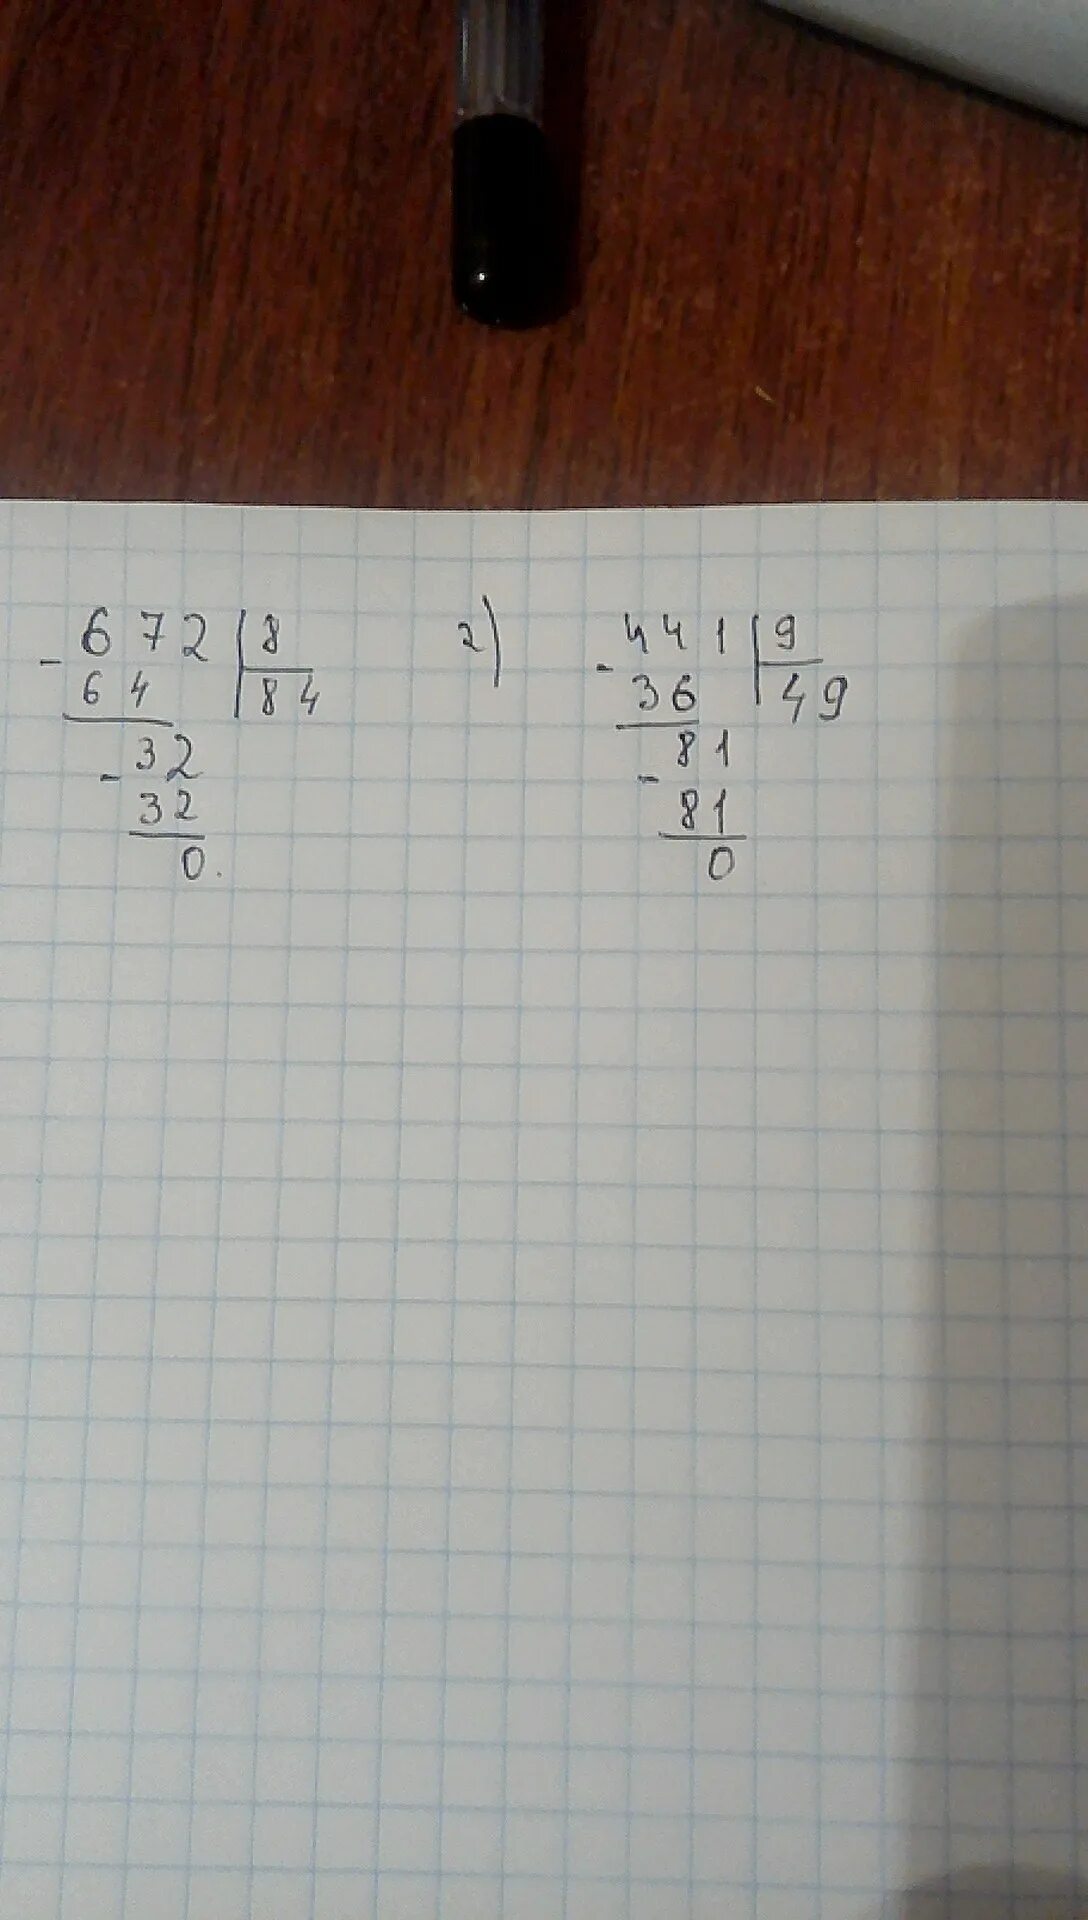 - 672 | 8
64 | 84
- 32
32
0.
2) - 441 | 9
36 | 49
- 81
81
0